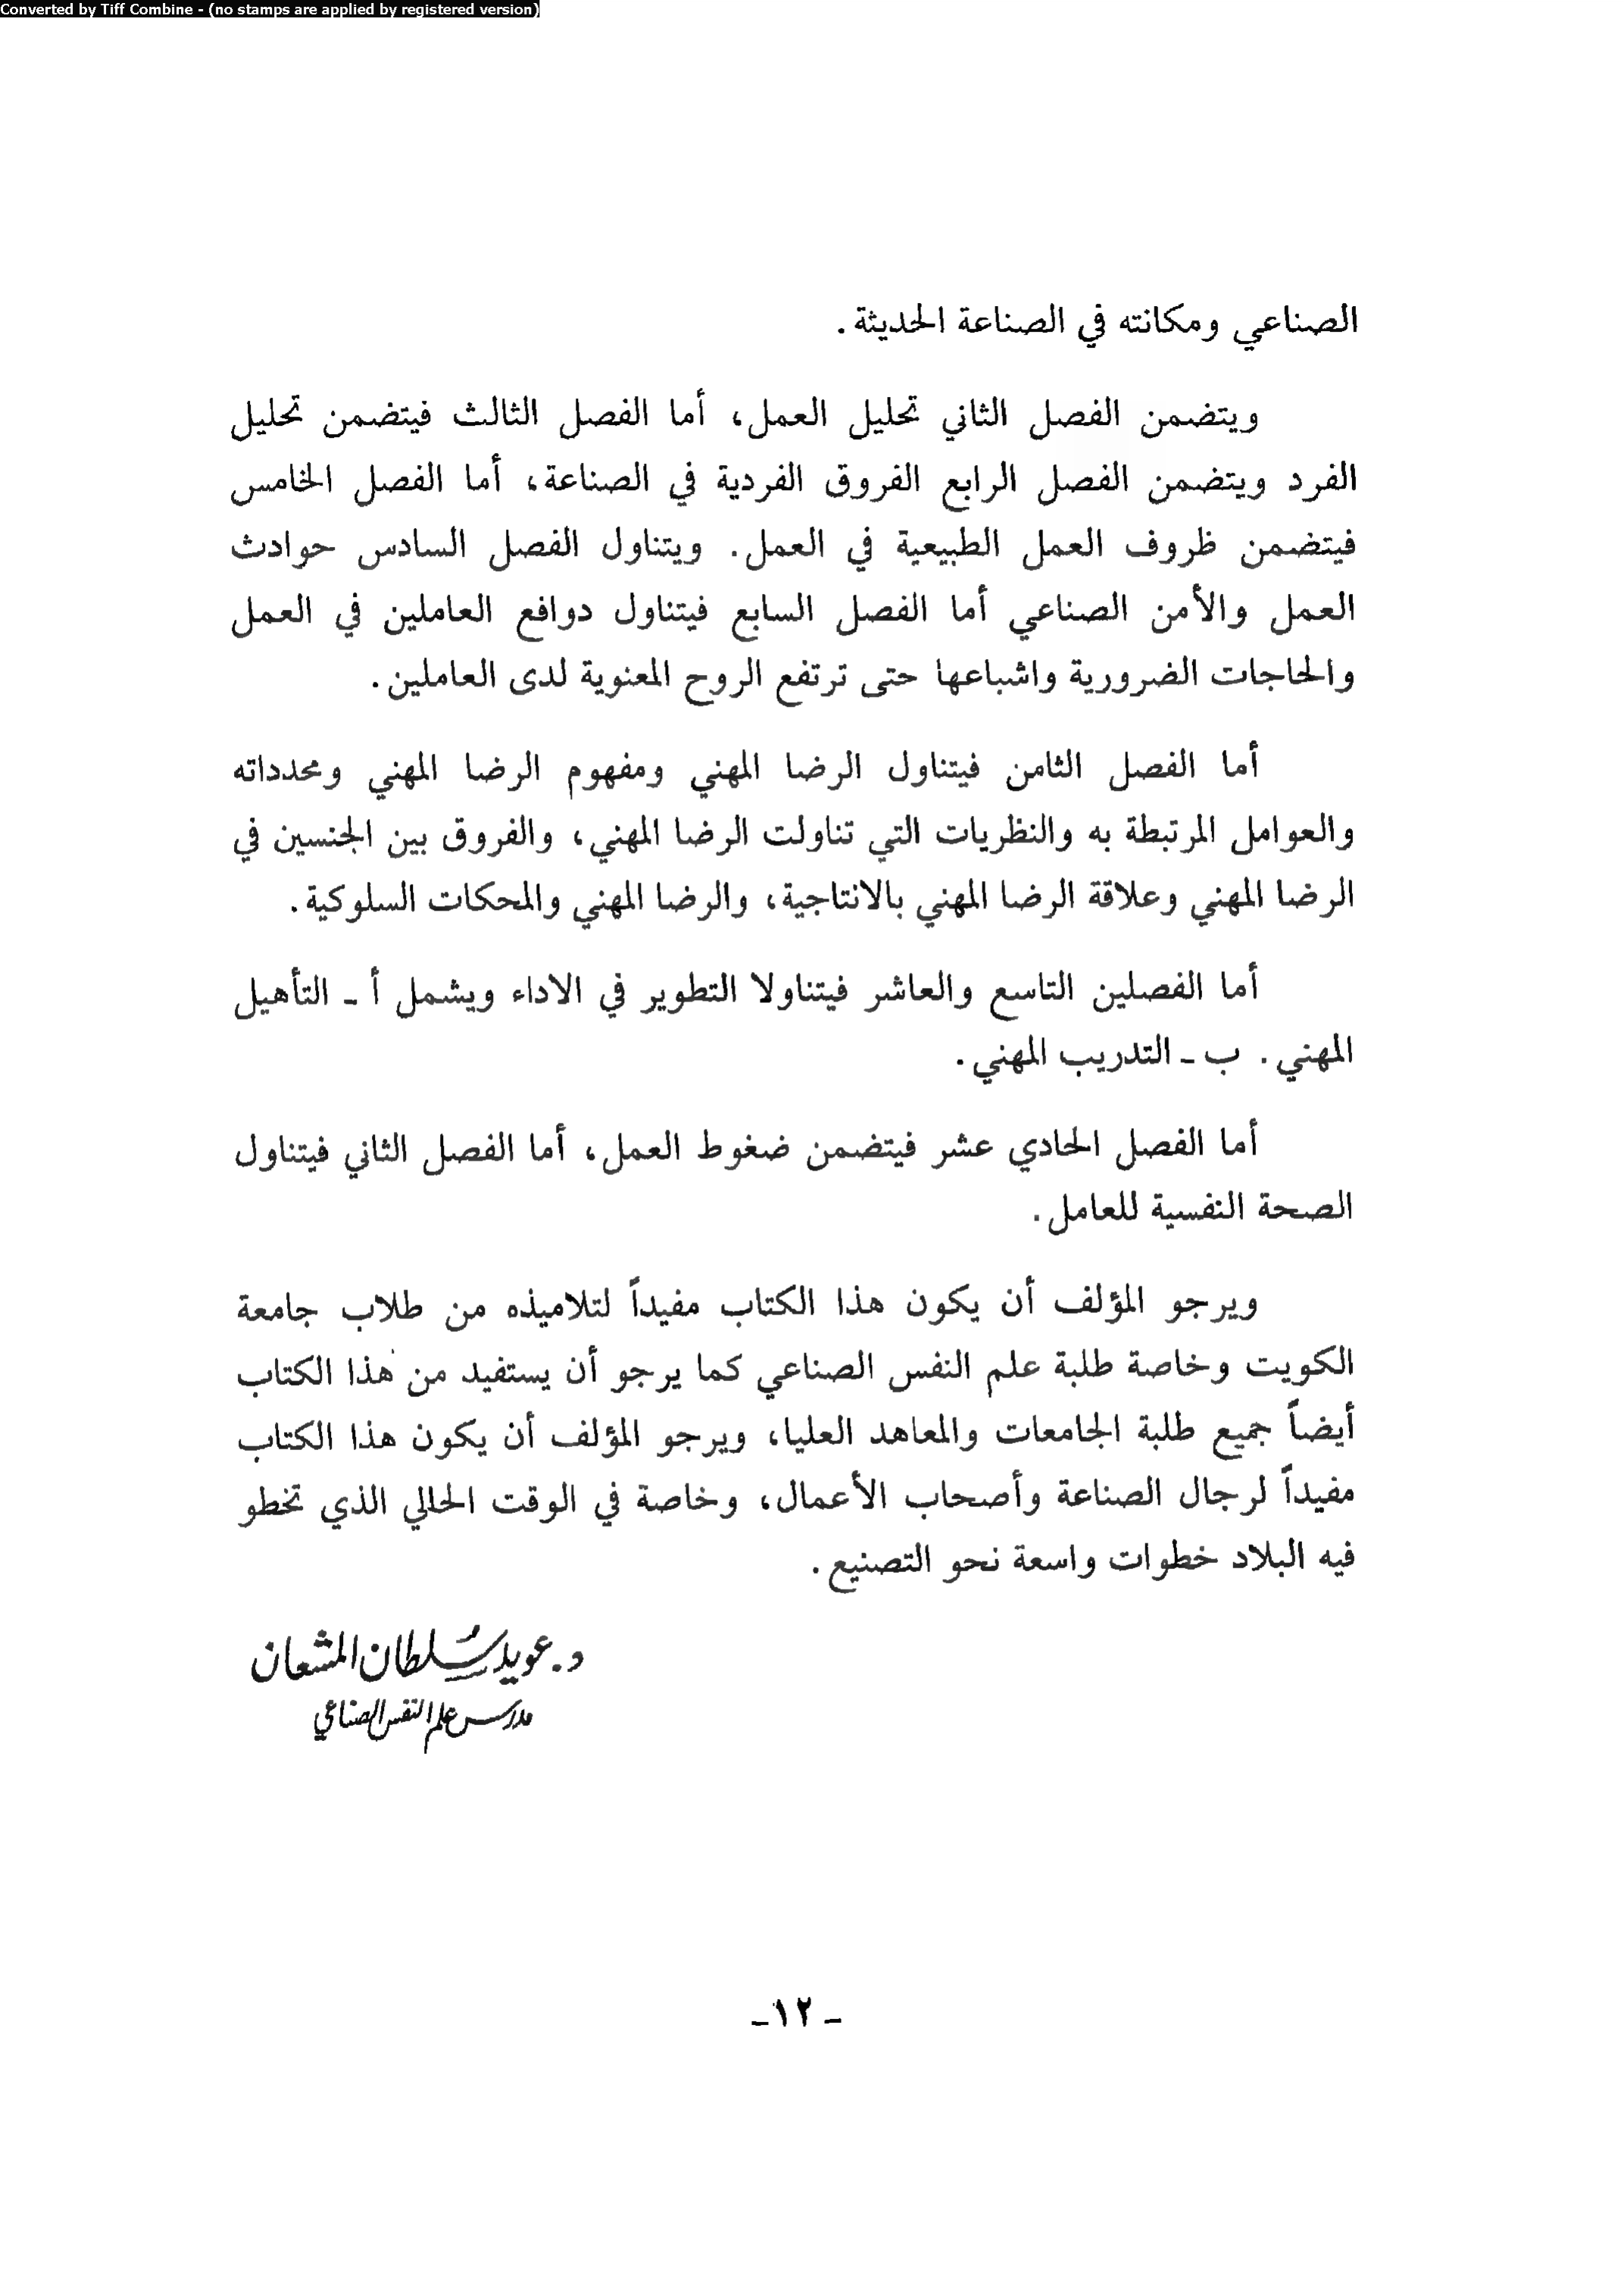 Converted by Tiff Combine - (no stamps are applied by registered version)
الصناعي ومكانته في الصناعة الحديثة.
ويتضمن الفصل الثاني تحليل العمل، أما الفصل الثالث فيتضمن تحليل
الفرد ويتضمن الفصل الرابع الفروق الفردية في الصناعة، أما الفصل الخامس
فيتضمن ظروف العمل الطبيعية في العمل. ويتناول الفصل السادس حوادث
العمل والأمن الصناعي أما الفصل السابع فيتناول دوافع العاملين في العمل
والحاجات الضرورية واشباعها حتى ترتفع الروح المعنوية لدى العاملين.
أما الفصل الثامن فيتناول الرضا المهني ومفهوم الرضا المهني ومحدداته
والعوامل المرتبطة به والنظريات التي تناولت الرضا المهني، والفروق بين الجنسين في
الرضا المهني وعلاقة الرضا المهني بالانتاجية، والرضا المهني والمحكات السلوكية.
أما الفصلين التاسع والعاشر فيتناولا التطوير في الاداء ويشمل أ ـ التأهيل
المهني. ب ـ التدريب المهني.
أما الفصل الحادي عشر فيتضمن ضغوط العمل، أما الفصل الثاني فيتناول
الصحة النفسية للعامل.
ويرجو المؤلف أن يكون هذا الكتاب مفيداً لتلاميذه من طلاب جامعة
الكويت وخاصة طلبة علم النفس الصناعي كما يرجو أن يستفيد من هذا الكتاب
أيضاً جميع طلبة الجامعات والمعاهد العليا، ويرجو المؤلف أن يكون هذا الكتاب
مفيداً لرجال الصناعة وأصحاب الأعمال، وخاصة في الوقت الحالي الذي تخطو
فيه البلاد خطوات واسعة نحو التصنيع.
د. عويد سُلطان المشعان
مدرس علم النفس الصناعي
ـ ١٢ـ